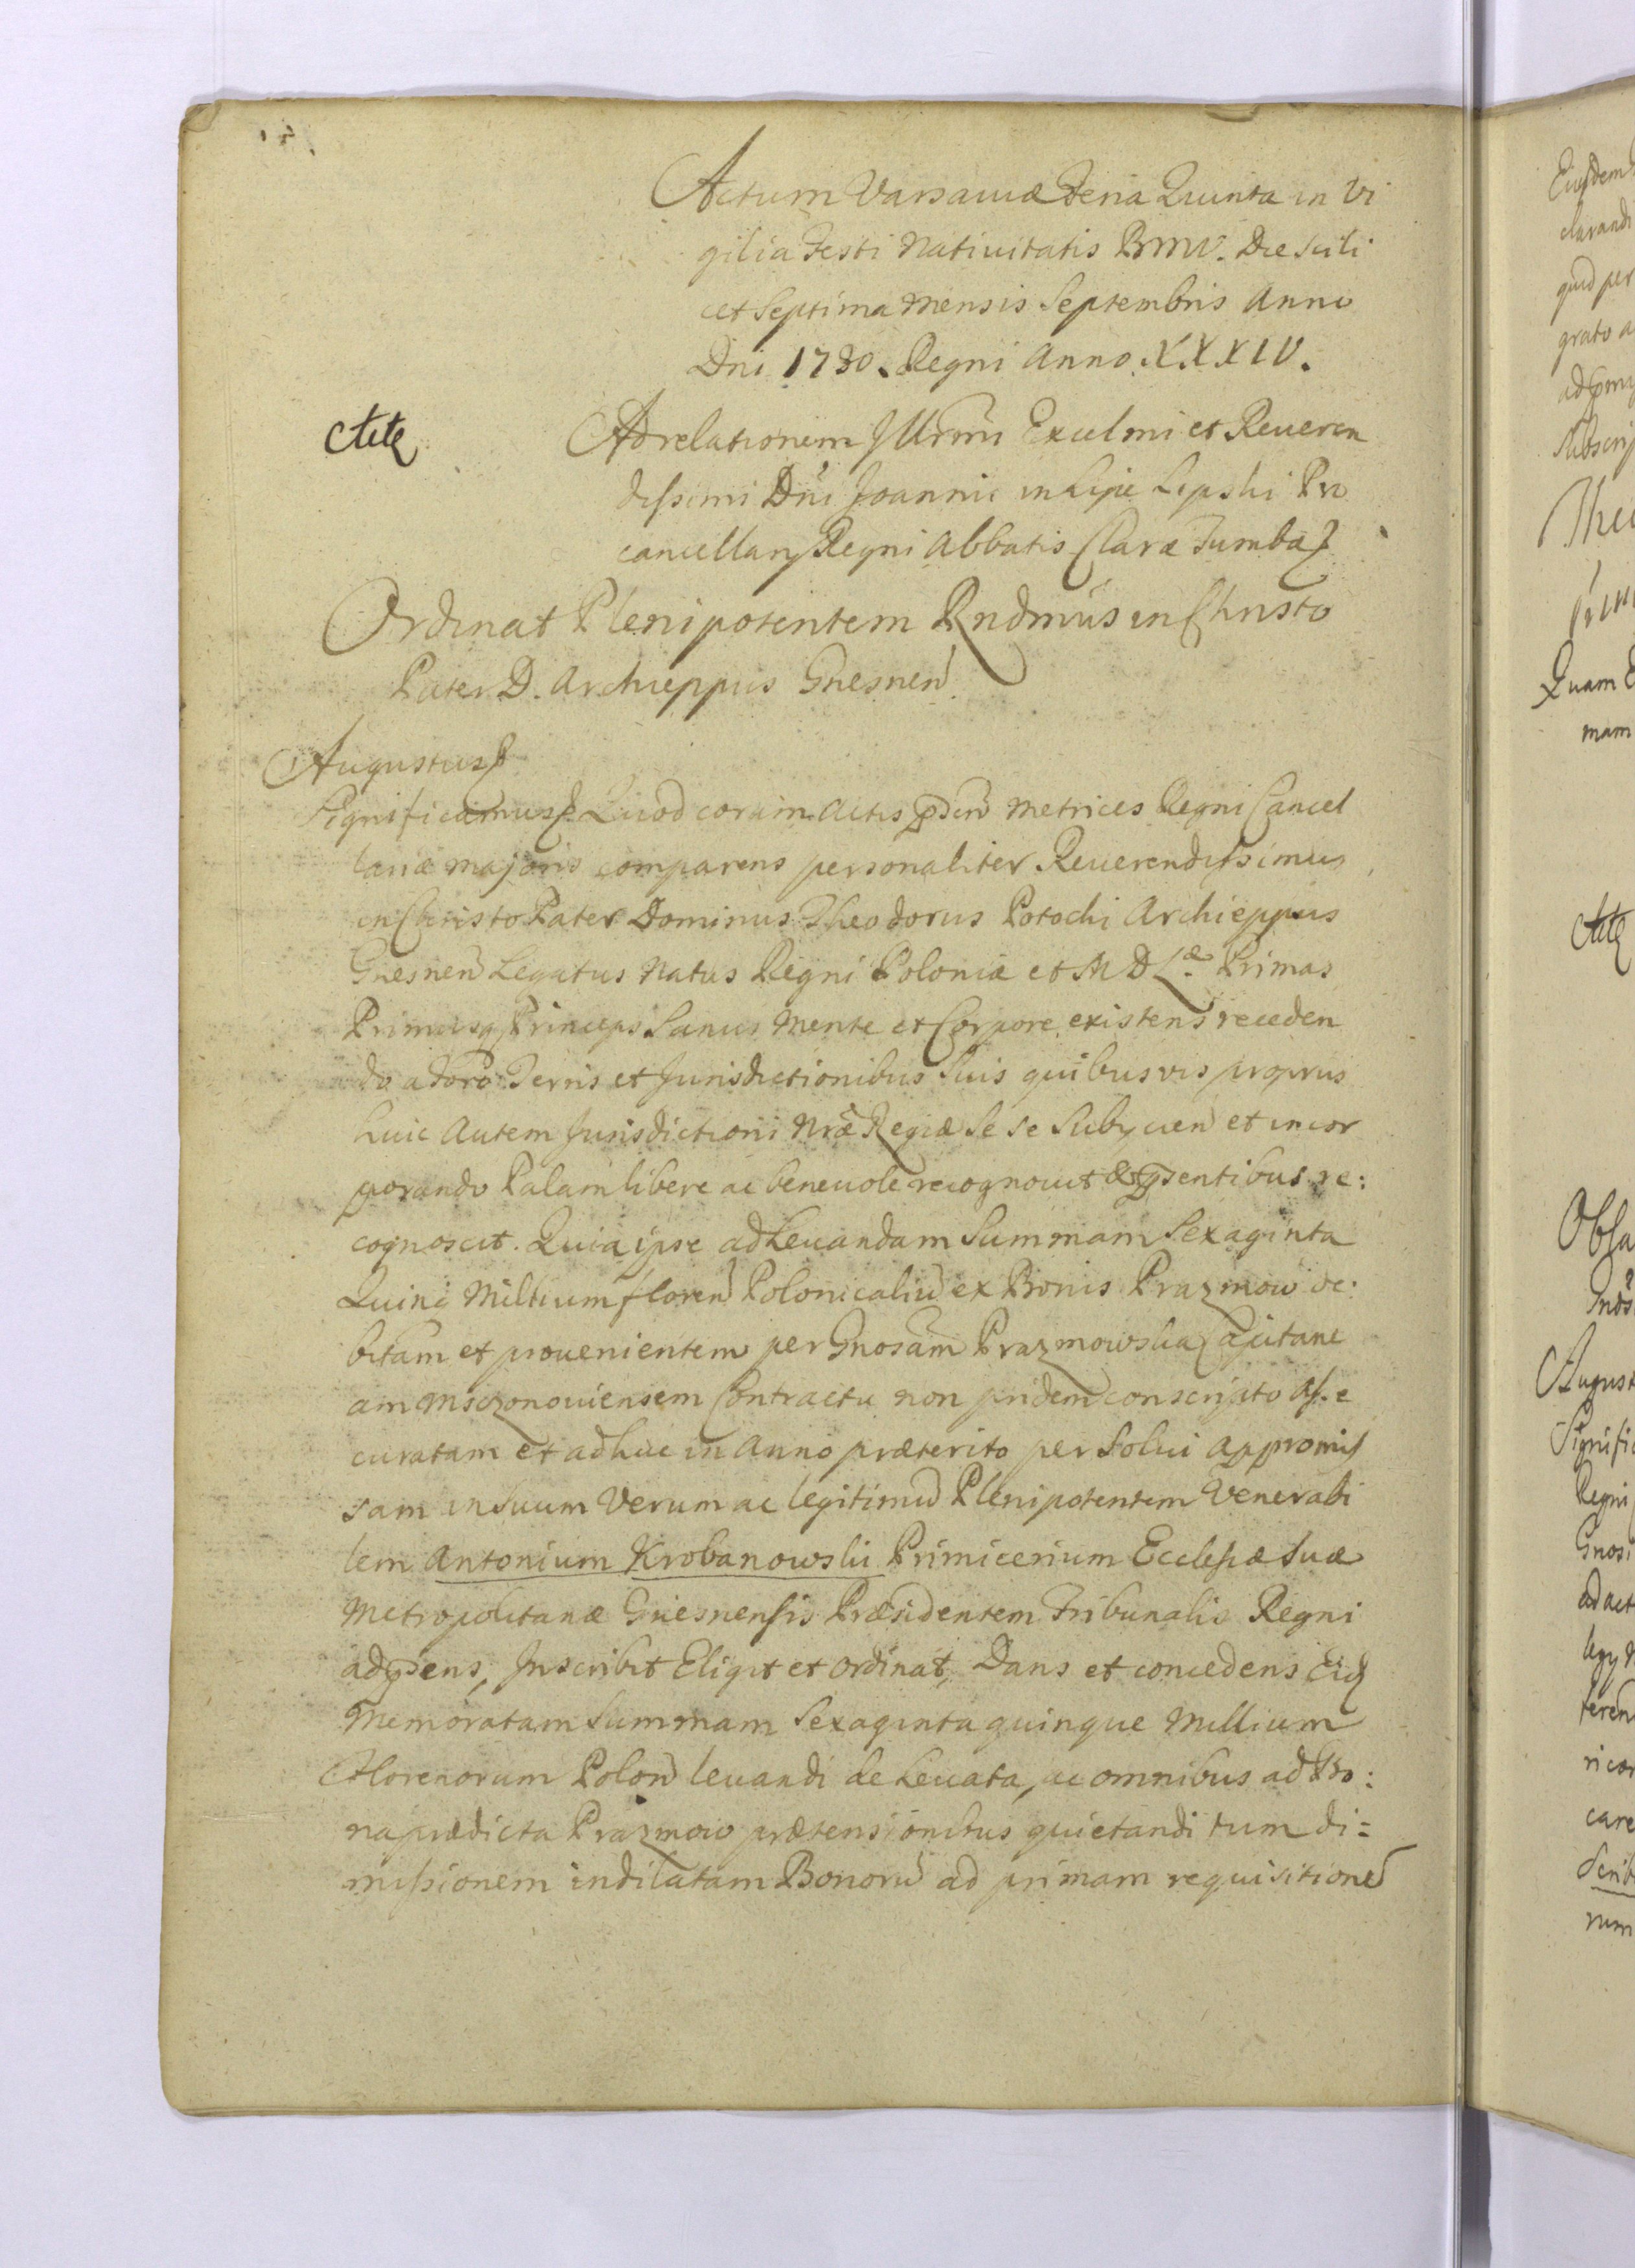 Actum Varsaviæ Feria Quinta in Vi
gilia Festi Nativitatis BMV. Die Scili
cet Septima Mensis Septembris Anno
Dni 1730. Regni Anno XXXIV.
Ad relationem Illrmi Excelmi et Reveren
dissimi Dni Joannis in Lipie Lipski Pro
cancellarij Regni Abbatis Claræ Tumbæ
Ordinat Plenipotentem Rndmus in Christo
Pater D. Archieppus Gnesnen
Augustus
Significamus Quod coram Actis pden Metrices Regni Cancel
lariæ majoris comparens personaliter Reverendissimus
in Christo Pater Dominus Theodorus Potocki Archieppus
Gnesnen Legatus Natus Regni Poloniæ et M D Læ Primas
Primusq Princeps Sanus Mente et Corpore existens receden
do a foro Terris et Jurisdictionibus Suis quibusvis proprus
huic Autem Jurisdictioni Nræ Regiæ Se se Subijcien et incor
porando Palam libere ac benevole recognovit & psentibus re:
cognoscit. Quia ipse ad Levandam Summam Sexaginta
Quinq Millium floren Polonicaliu ex Bonis Prazmow de:
bitam et provenientem per Gnosam Prazmowska Capitane
am Mszczonoviensem Contractu non pridem conscripto Asse
curatam et adhuc in Anno præterito per Solvi appromis
sam in Suum Verum ac legitimu Plenipotentem Venerabi
lem Antonium Krobanowski Primicerium Ecclesiæ Suæ
Metropolitanæ Gnesnensis Præsidentem Tribunalis Regni
ad psens, Inscribit Eligit et ordinat, Dans et concedens Eid
Memoratam Summam Sexaginta quinque Millium
Florenorum Polon levandi de Levata, ac omnibus ad Bo:
na prædicta Prazmow prætensionibus quietandi tum di=
missionem indilatam Bonoru ad primam requisitione